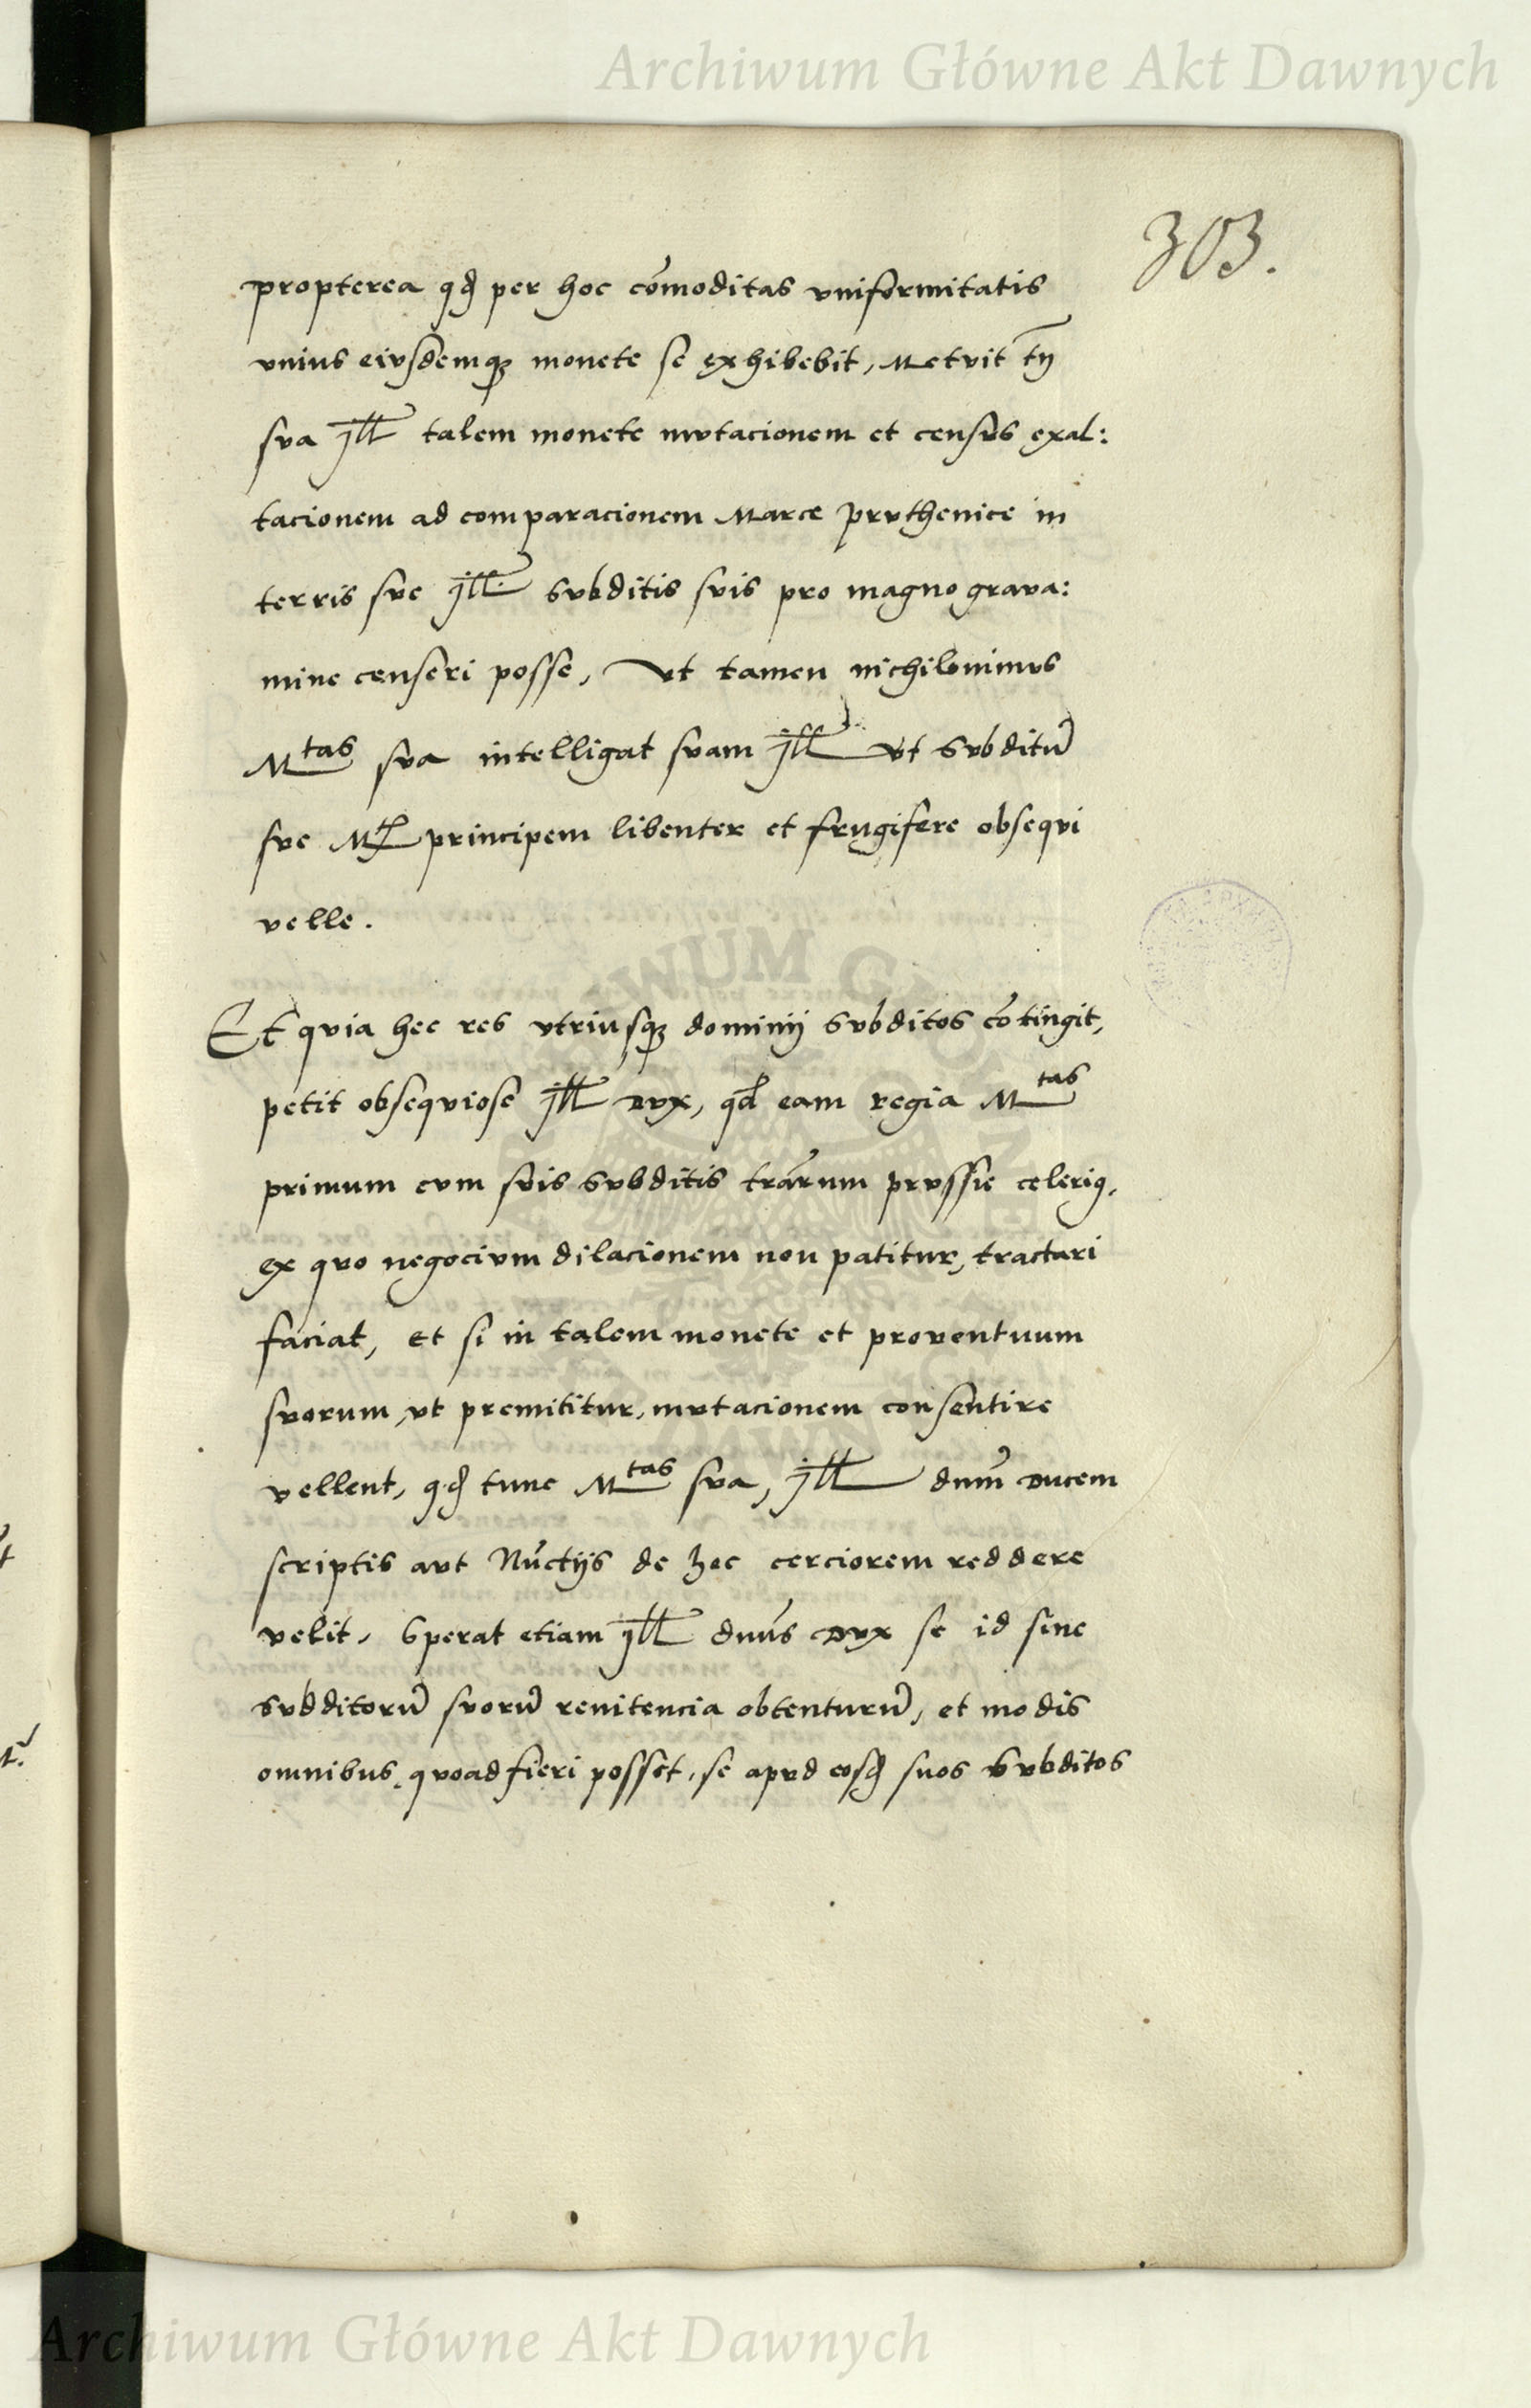 Archiwum Główne Akt Dawnych
303.
propterea qđ per hoc cōmoditas vniformitatis
vnius eivsdemqꝫ monete se exhibebit, Metvit tn̄
sva jll talem monete mvtacionem et censvs exal:
tacionem ad comparacionem Marce prvthenice in
terris sve jll. svbditis svis pro magno grava:
mine censeri posse, Vt tamen nichilominvs
Mtas sva intelligat svam jll vt svbditū
sve Mtꝭ principem libenter et frugifere obseqvi
velle.
Et qvia hec res vtriusqꝫ dominij svbditos cōtingit,
petit obseqviose jll Dvx, qđ eam regia Mtas
primum cvm svis svbditis trārum prvssie celeriꝯ,
ex qvo negocivm dilacionem non patitur, tractari
faciat, et si in talem monete et proventuum
svorum, vt premititur, mvtacionem consentire
vellent, qđ tunc Mtas sva, jll dnm̄ Ducem
scriptis avt Nūctijs de hoc cerciorem reddere
velit, Sperat etiam jll dnūs Dvx se id sine
svbditorū svorū renitencia obtenturū, et modis
omnibus, qvoad fieri posset, se apvd eosđ suos svbditos
Archiwum Główne Akt Dawnych